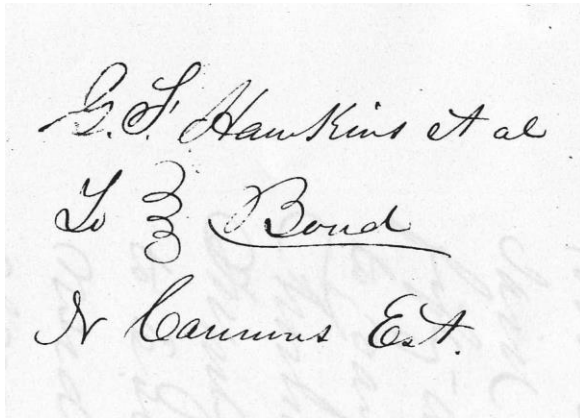 G. F. Hawkins et al
To Bond
N Cannons Est.